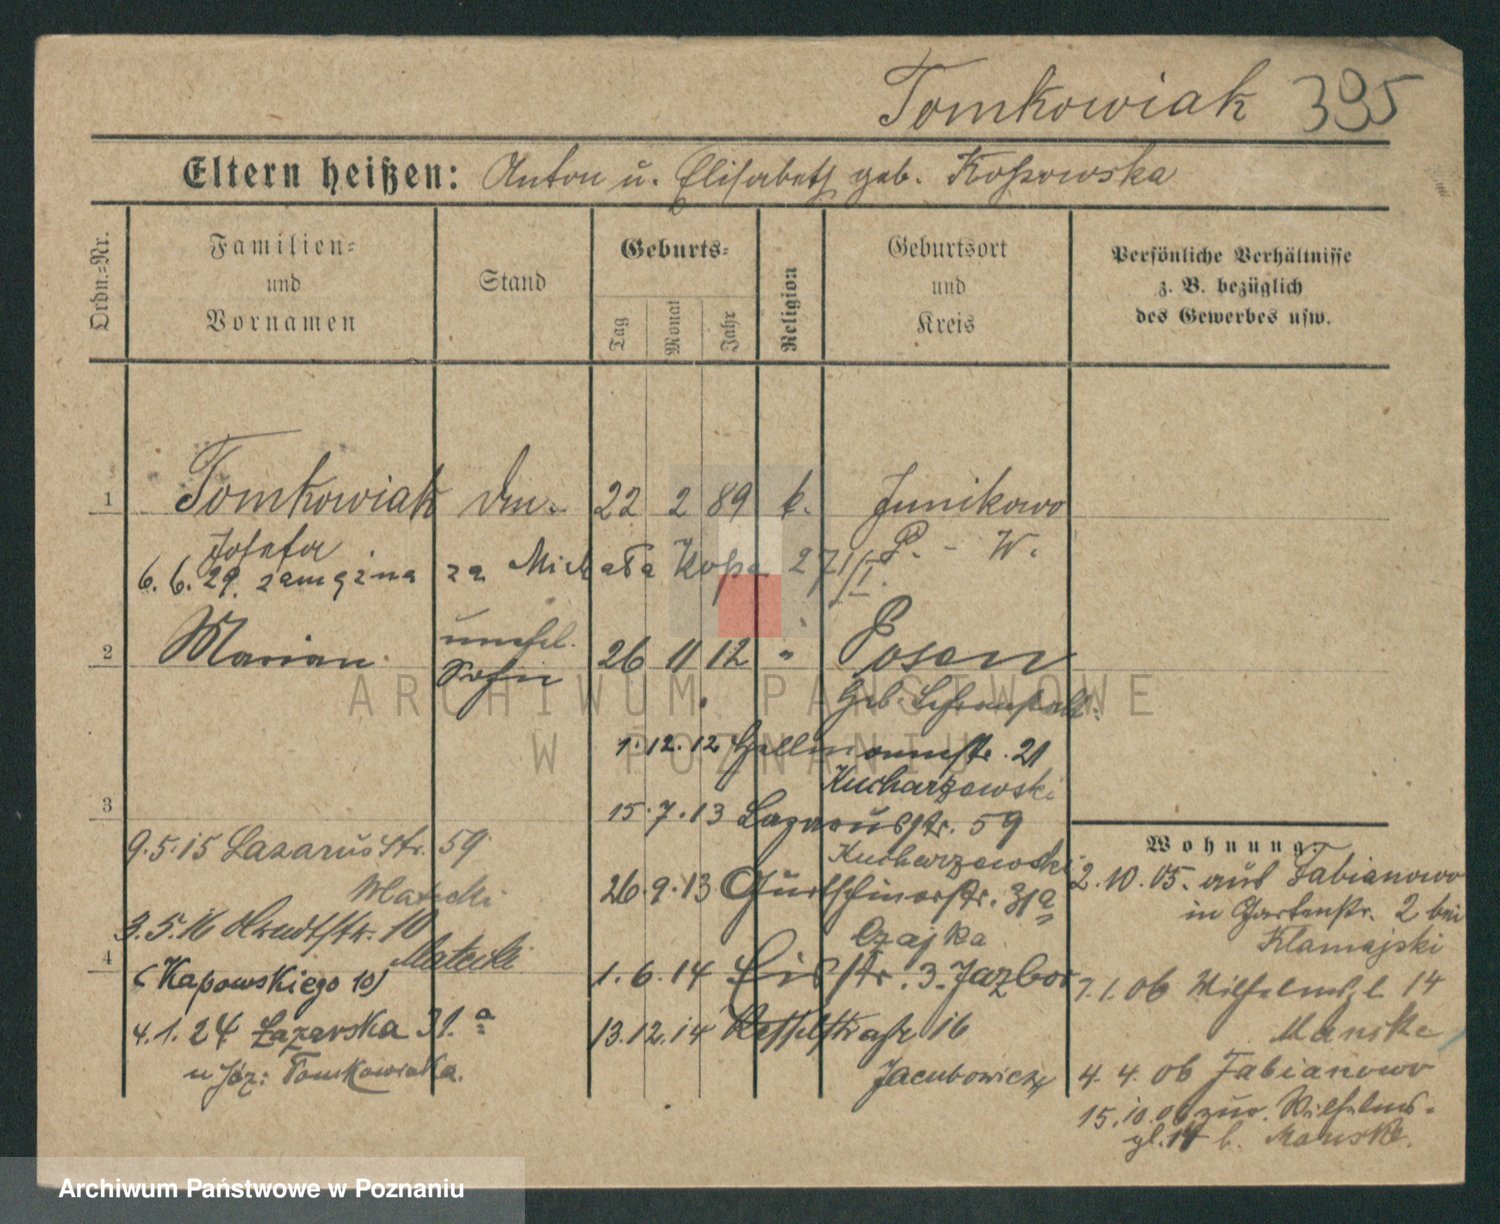 Tomkowiak 395
Eltern heißen: Anton u. Elisabeth geb. Koßowska
Ordn.-Nr.
Familien- und Vornamen
Stand
Geburts-
Tag
Monat
Jahr
Religion
Geburtsort und Kreis
Persönliche Verhältnisse z. B. bezüglich des Gewerbes usw.
1 Tomkowiak 22 2 89 k. Junikowo
Josefa P. - W.
6.6.29. zamężna za Michała Koßa 27/I.
2 Marian unehel. 26 11 12 " Posen
Sohn
Geb.
1.12.12 Hellmannstr. 21
Kucharzewski
3 15.7.13 Lazarusstr. 59
Kucharzewski
26.9.13 Gurtschinerstr. 31a
Czajka
1.6.14 Eisstr. 3. Jazbor
13.12.14 Kesselstraße 16
Jacubowicz
9.5.15 Lazarusstr. 59
Matecki
3.5.16 Arndtstr. 10
Matecki
4
(Kapowskiego 10)
4.1.24 Łazarska 31.a
u Józ: Tomkowiaka.
Wohnung:
2.10.05. aus Fabianowo
in Gartenstr. 2 bei
Klamajski
7.1.06 Wilhelmspl. 14
Manske
4.4.06 Fabianowo
15.10.06 zur. Wilhelms-
pl. 14 b. Manske.
ARCHIWUM PAŃSTWOWE
W POZNANIU
Archiwum Państwowe w Poznaniu